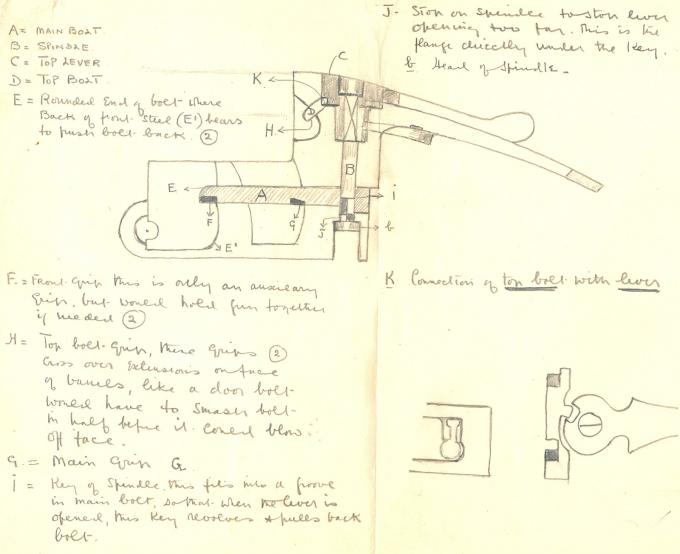 A = MAIN BOLT.
B = SPINDLE
C = TOP LEVER
D = TOP BOLT.
E = Rounded End of bolt where
Back of front steel (E') bears
to push bolt back. (2)
J - Stop on spindle to stop lever
opening too far. This is the
flange directly under the key.
b Head of Spindle -
C
K.
H.
D
B
E
A
i
F
G
J
b
E'
F. = Front Grip this is only an auxiliary
Grip, but would hold gun together
if needed (2)
H = Top bolt Grip, these Grips (2)
cross over Extensions on face
of barrels, like a door bolt
would have to smash bolt
in half before it could blow
off face.
G. = Main Grip G.
i = Key of Spindle, this fits into a groove
in main bolt, so that when the lever is
opened, this key revolves & pulls back
bolt.
K Connection of top bolt with lever